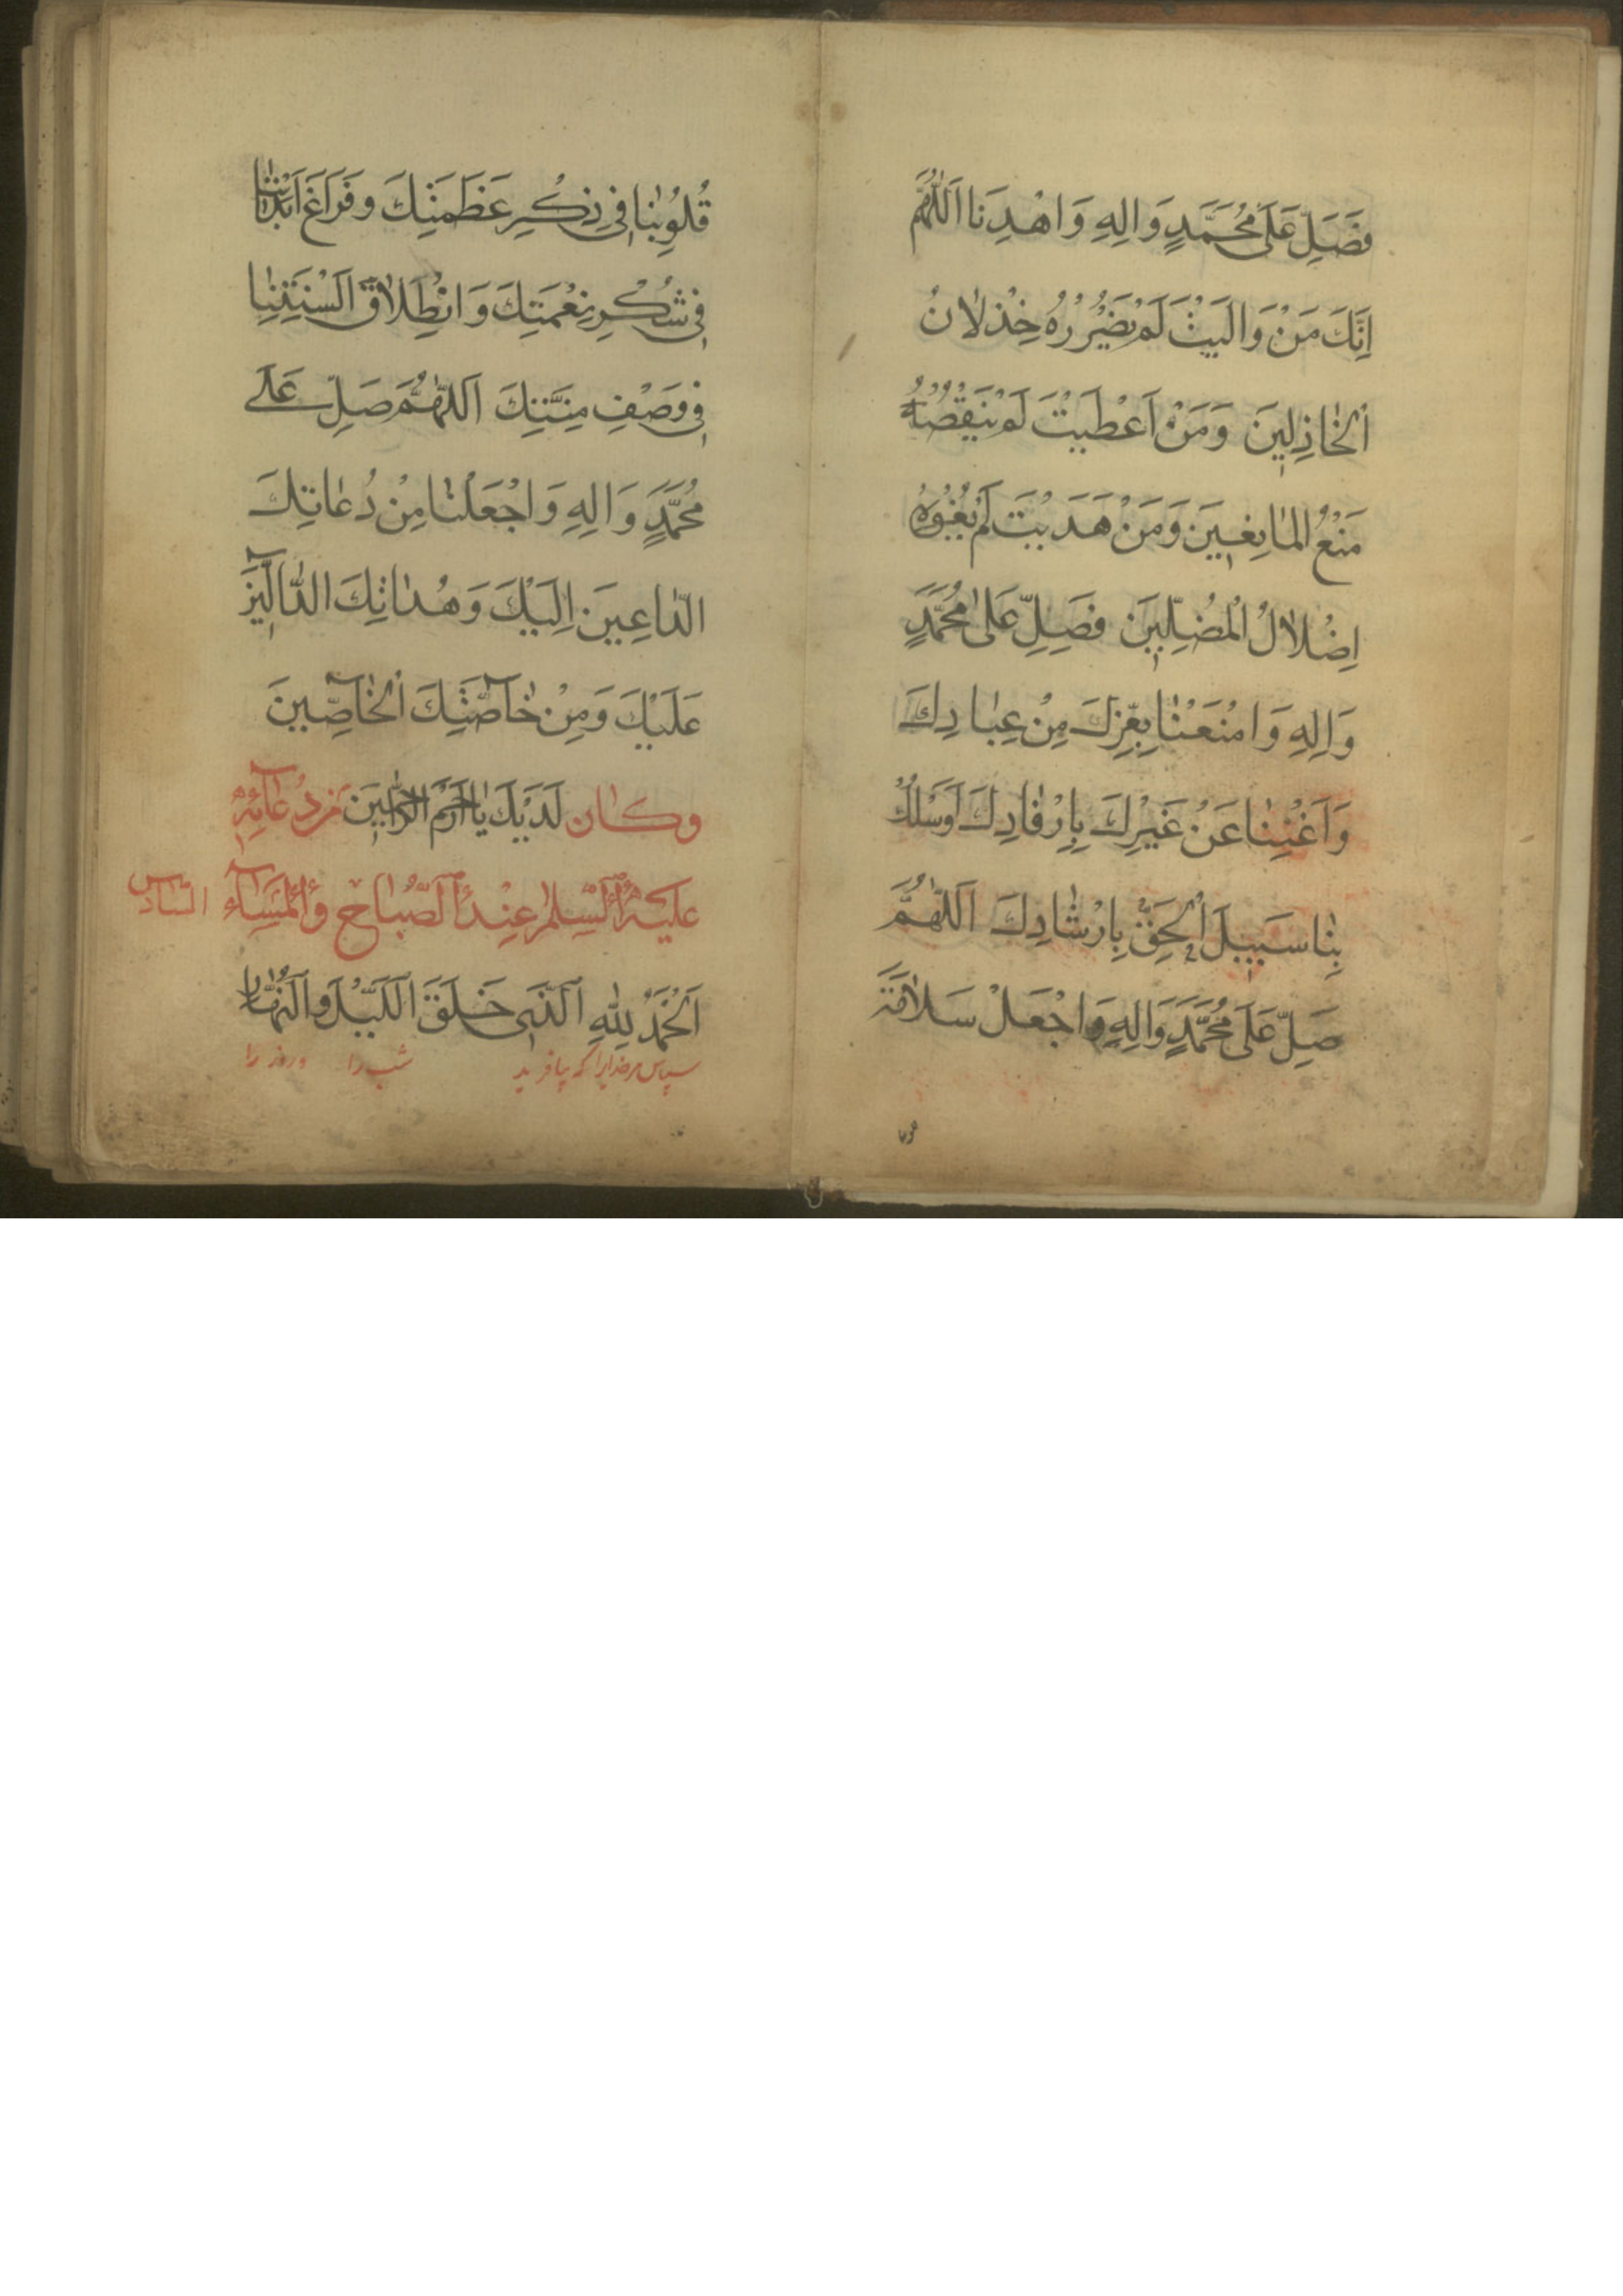 فَصَلِّ عَلَى مُحَمَّدٍ وَالِهِ وَاهْدِنَا اَللّٰهُمَّ
اِنَّكَ مَنْ وَالَيْتَ لَمْ يَضْرُرْهُ خِذْلَانُ
الْخَاذِلِينَ وَمَنْ اَعْطَيْتَ لَمْ يَنْقُصْهُ
مَنْعُ الْمَانِعِينَ وَمَنْ هَدَيْتَ لَمْ يُغْوِهِ
اِضْلَالُ الْمُضِلِّينَ فَصَلِّ عَلَى مُحَمَّدٍ
وَالِهِ وَامْنَعْنَا بِعِزِّكَ مِنْ عِبَادِكَ
وَاَغْنِنَا عَنْ غَيْرِكَ بِاِرْفَادِكَ وَاسْلُكْ
بِنَا سَبِيلَ الْحَقِّ بِاِرْشَادِكَ اَللّٰهُمَّ
صَلِّ عَلَى مُحَمَّدٍ وَالِهِ وَاجْعَلْ سَلَامَةَ
قُلُوبِنَا فِي ذِكْرِ عَظَمَتِكَ وَفَرَاغَ اَبْدَانِنَا
فِي شُكْرِ نِعْمَتِكَ وَانْطِلَاقَ اَلْسِنَتِنَا
فِي وَصْفِ مِنَّتِكَ اَللّٰهُمَّ صَلِّ عَلَى
مُحَمَّدٍ وَالِهِ وَاجْعَلْنَا مِنْ دُعَاتِكَ
الدَّاعِينَ اِلَيْكَ وَهُدَاتِكَ الدَّالِّينَ
عَلَيْكَ وَمِنْ خَاصَّتِكَ الْخَاصِّينَ
لَدَيْكَ يَا اَرْحَمَ الرَّاحِمِينَ وكان من دُعَآئِهِ
عليه السلم عِنْدَ الصَّبَاحِ وَالْمَسَآءِ السادس
اَلْحَمْدُ لِلّٰهِ الَّذِي خَلَقَ اللَّيْلَ وَالنَّهَارَ
سپاس مر خدایرا که بیافرید شب را وروز را